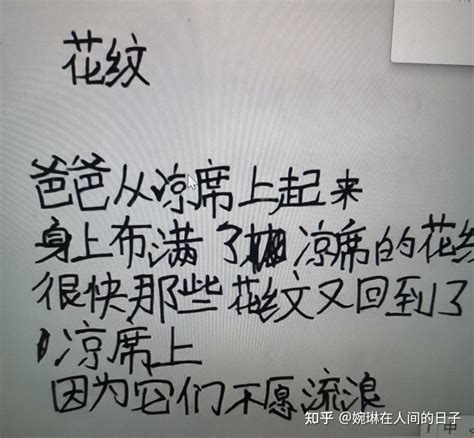 花纹
爸爸从凉席上起来
身上布满了凉席的花纹
很快那些花纹又回到了
凉席上
因为它们不愿流浪
知乎 @婉琳在人间的日子
中